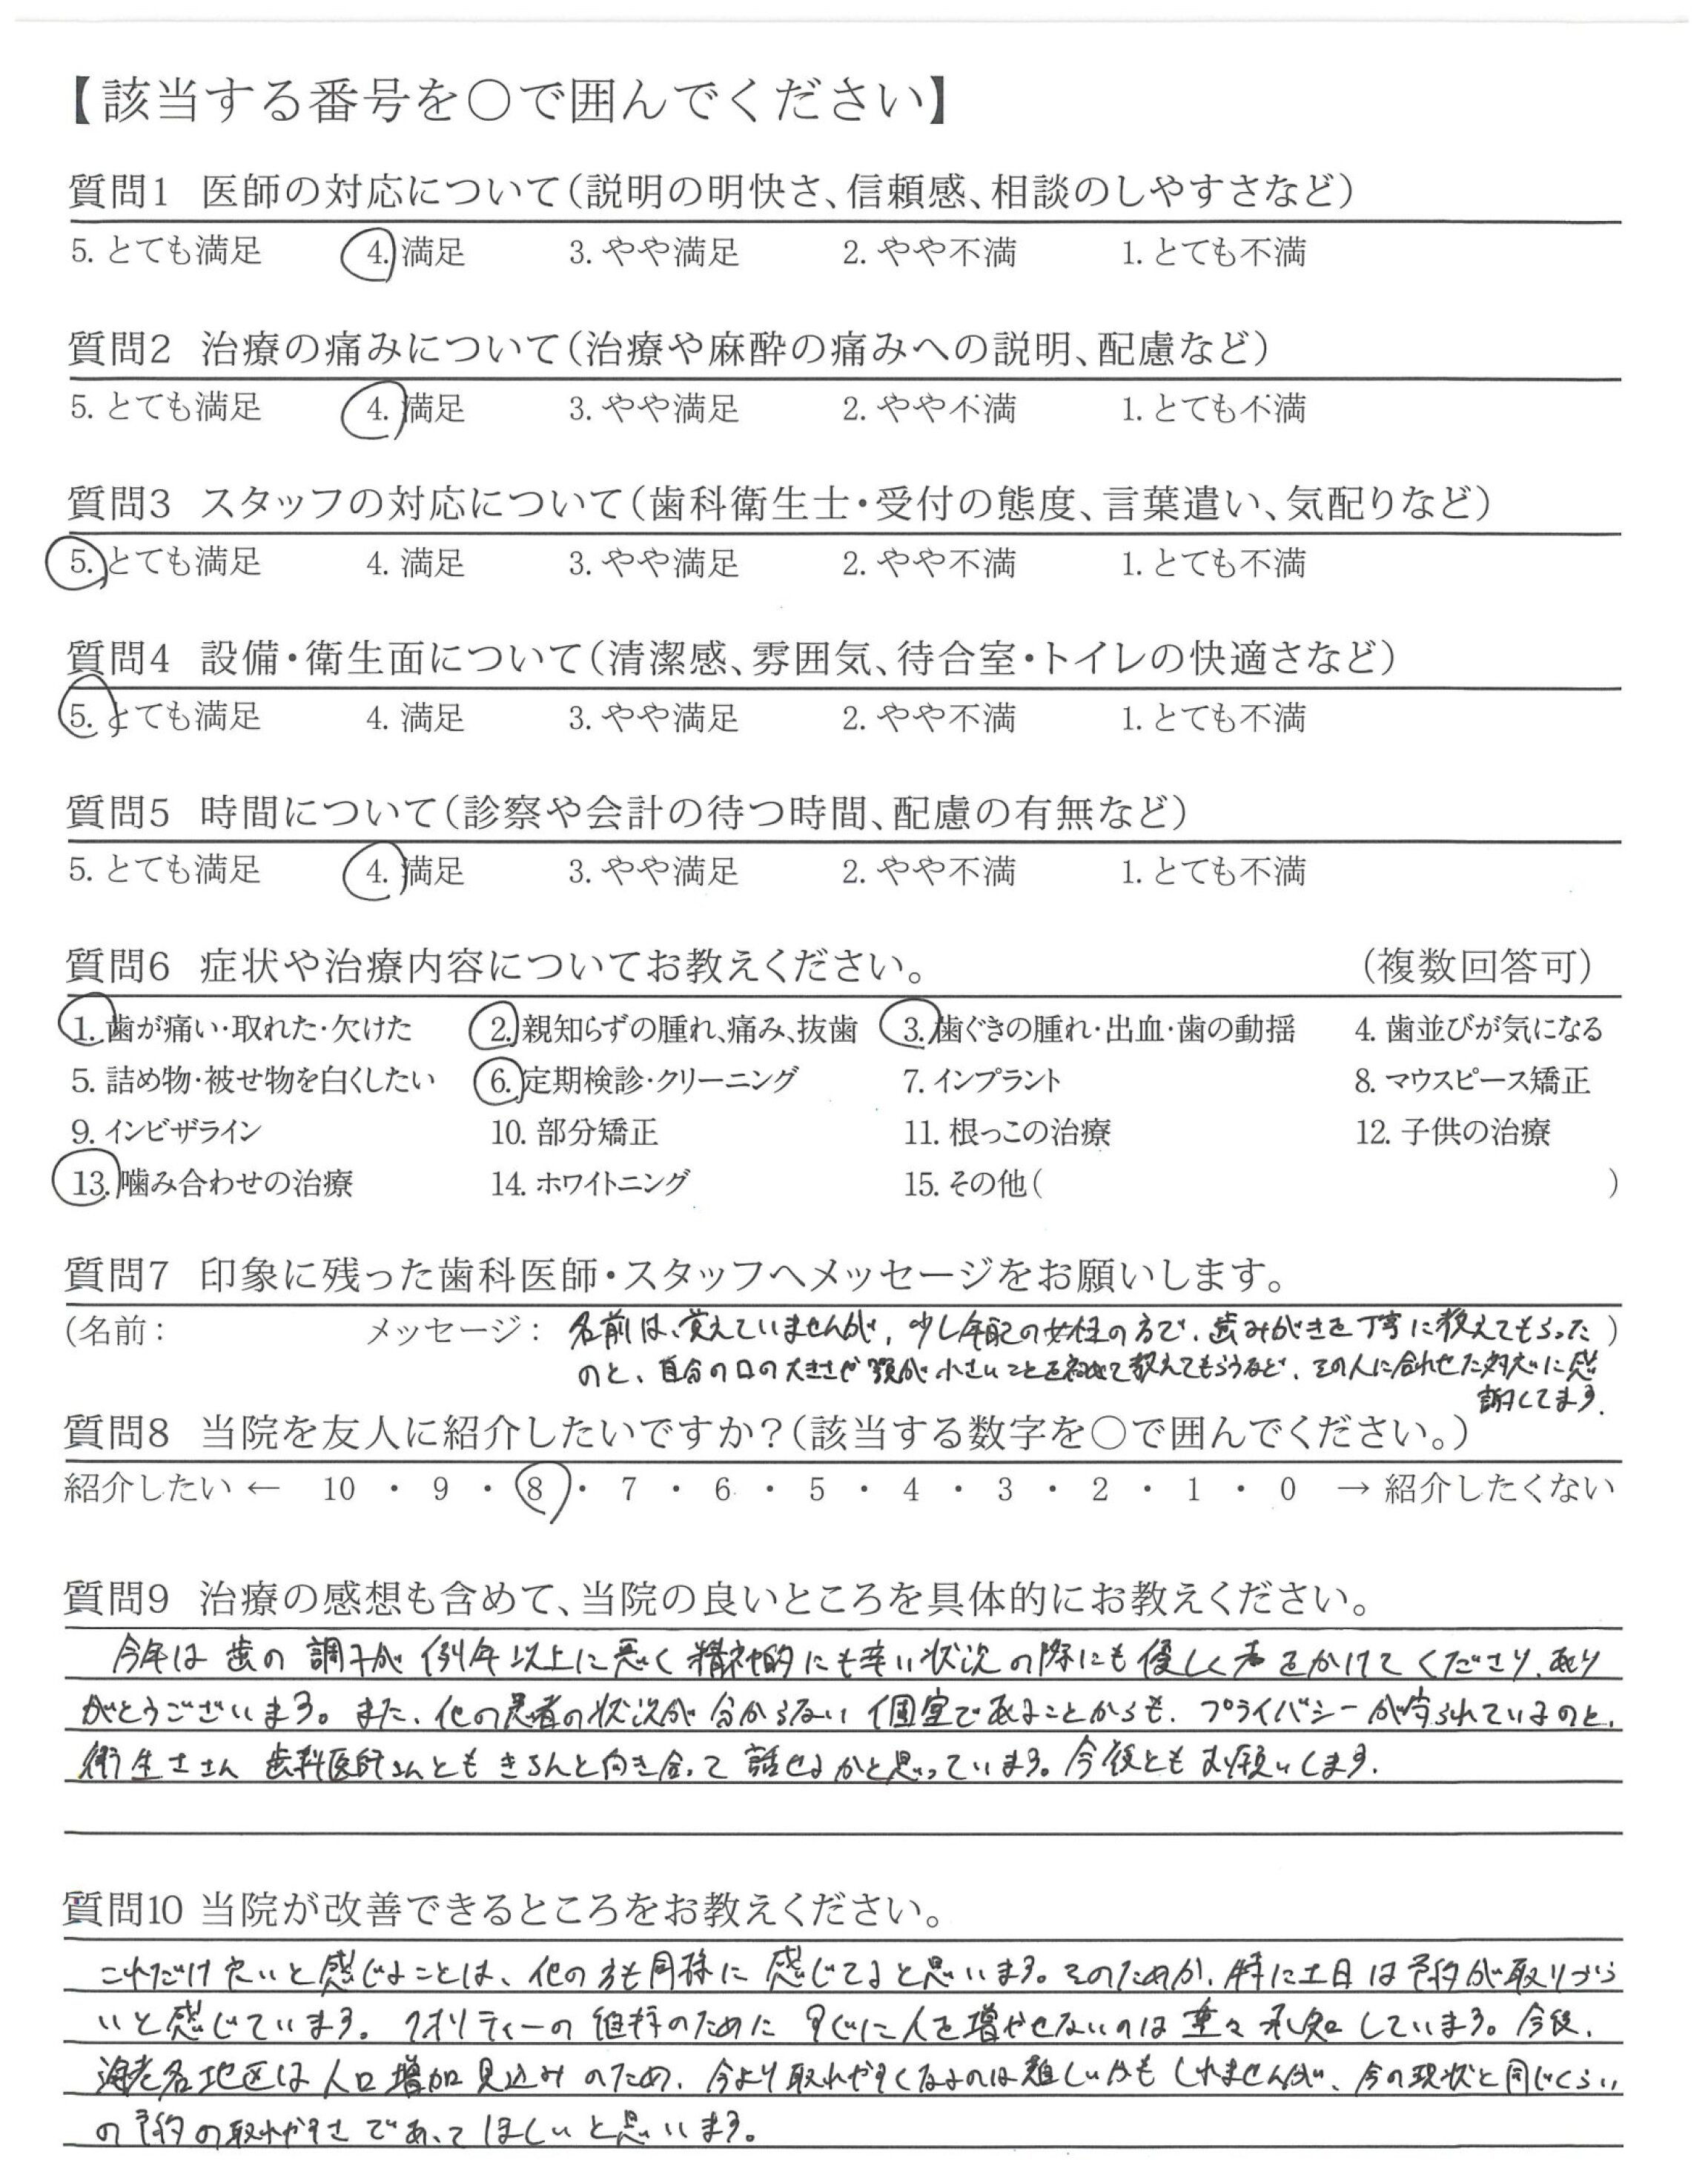 【該当する番号を○で囲んでください】
質問1 医師の対応について（説明の明快さ、信頼感、相談のしやすさなど）
5. とても満足 4. 満足 3. やや満足 2. やや不満 1. とても不満
質問2 治療の痛みについて（治療や麻酔の痛みへの説明、配慮など）
5. とても満足 4. 満足 3. やや満足 2. やや不満 1. とても不満
質問3 スタッフの対応について（歯科衛生士・受付の態度、言葉遣い、気配りなど）
5. とても満足 4. 満足 3. やや満足 2. やや不満 1. とても不満
質問4 設備・衛生面について（清潔感、雰囲気、待合室・トイレの快適さなど）
5. とても満足 4. 満足 3. やや満足 2. やや不満 1. とても不満
質問5 時間について（診察や会計の待つ時間、配慮の有無など）
5. とても満足 4. 満足 3. やや満足 2. やや不満 1. とても不満
質問6 症状や治療内容についてお教えください。 （複数回答可）
1. 歯が痛い・取れた・欠けた 2. 親知らずの腫れ、痛み、抜歯 3. 歯ぐきの腫れ・出血・歯の動揺 4. 歯並びが気になる
5. 詰め物・被せ物を白くしたい 6. 定期検診・クリーニング 7. インプラント 8. マウスピース矯正
9. インビザライン 10. 部分矯正 11. 根っこの治療 12. 子供の治療
13. 噛み合わせの治療 14. ホワイトニング 15. その他（ ）
質問7 印象に残った歯科医師・スタッフへメッセージをお願いします。
（名前： メッセージ： 名前は、覚えていませんが、少し年配の女性の方で、歯みがきを丁寧に教えてもらった ）
のと、自分の口の大きさや顎が小さいことを初めて教えてもらうなど、その人に合わせた対応に感
謝してます。
質問8 当院を友人に紹介したいですか？（該当する数字を○で囲んでください。）
紹介したい ← 10 ・ 9 ・ 8 ・ 7 ・ 6 ・ 5 ・ 4 ・ 3 ・ 2 ・ 1 ・ 0 → 紹介したくない
質問9 治療の感想も含めて、当院の良いところを具体的にお教えください。
今年は歯の調子が例年以上に悪く精神的にも辛い状況の際にも優しく声をかけてくださり、あり
がとうございます。また、他の患者の状況が分からない個室であることからも、プライバシーが守られているのと、
衛生士さん 歯科医師さんともきちんと向き合って話せるかと思っています。今後ともお願いします。
質問10 当院が改善できるところをお教えください。
これだけ良いと感じることは、他の方も同様に感じてると思います。そのためか、特に土日は予約が取りづら
いと感じています。クオリティーの維持のためにすぐに人を増やせないのは重々承知しています。今後、
海老名地区は人口増加見込みのため、今より取れやすくなるのは難しいかもしれませんが、今の現状と同じくらい
の予約の取れやすさであってほしいと思います。